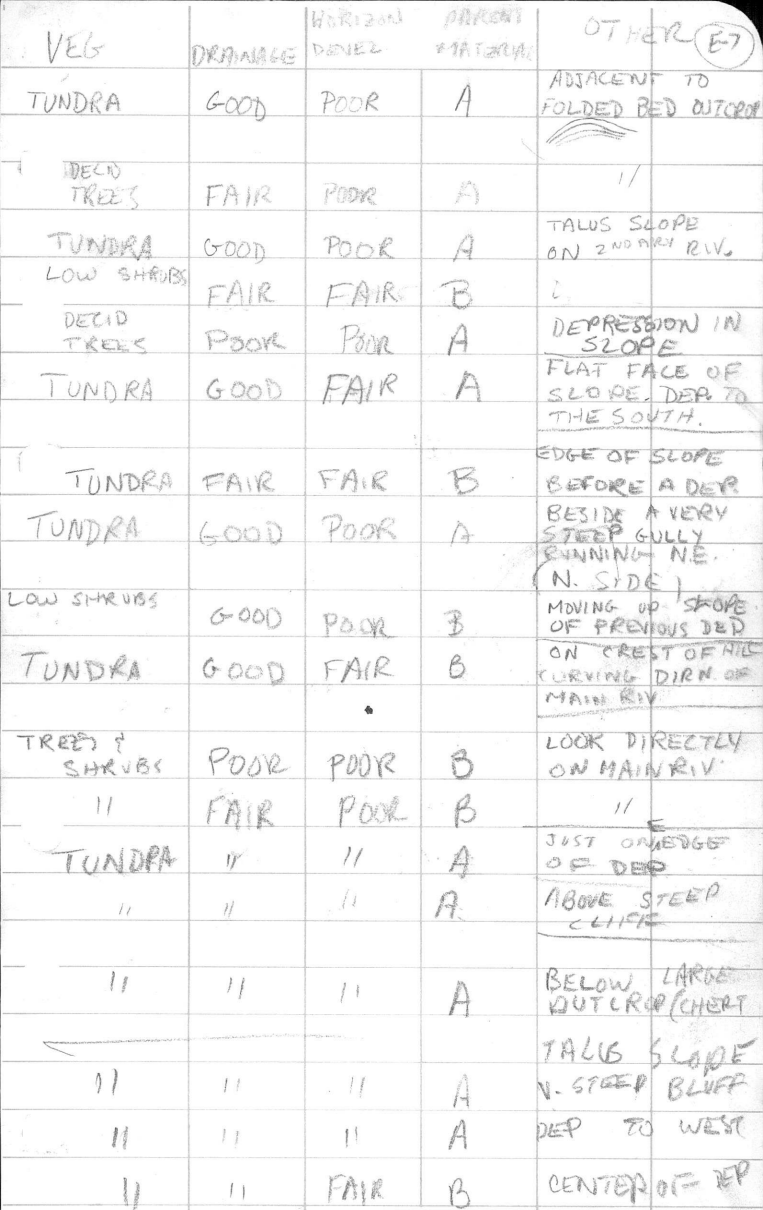 VEG DRAINAGE HORIZON DEVEL PARENT MATERIAL OTHER E-7
TUNDRA GOOD POOR A ADJACENT TO
FOLDED BED OUTCROP
DECID
TREES FAIR POOR A //
TUNDRA GOOD POOR A TALUS SLOPE
ON 2NDARY RIV.
LOW SHRUBS FAIR FAIR B
DECID
TREES POOR POOR A DEPRESSION IN
SLOPE
TUNDRA GOOD FAIR A FLAT FACE OF
SLOPE. DEP. TO
THE SOUTH.
TUNDRA FAIR FAIR B EDGE OF SLOPE
BEFORE A DEP
TUNDRA GOOD POOR A BESIDE A VERY
STEEP GULLY
RUNNING N.E.
(N. SIDE)
LOW SHRUBS GOOD POOR B MOVING UP SLOPE
OF PREVIOUS DEP
TUNDRA GOOD FAIR B ON CREST OF HILL
CURVING DIRN OF
MAIN RIV
TREES &
SHRUBS POOR POOR B LOOK DIRECTLY
ON MAIN RIV.
// FAIR POOR B //
TUNDRA // // A JUST ON E EDGE
OF DEP
// // // A ABOVE STEEP
CLIFF
// // // A BELOW LARGE
OUTCROP (CHERT
TALUS SLOPE
// // // A V. STEEP BLUFF
// // // A DEP TO WEST
// // FAIR B CENTER OF DEP